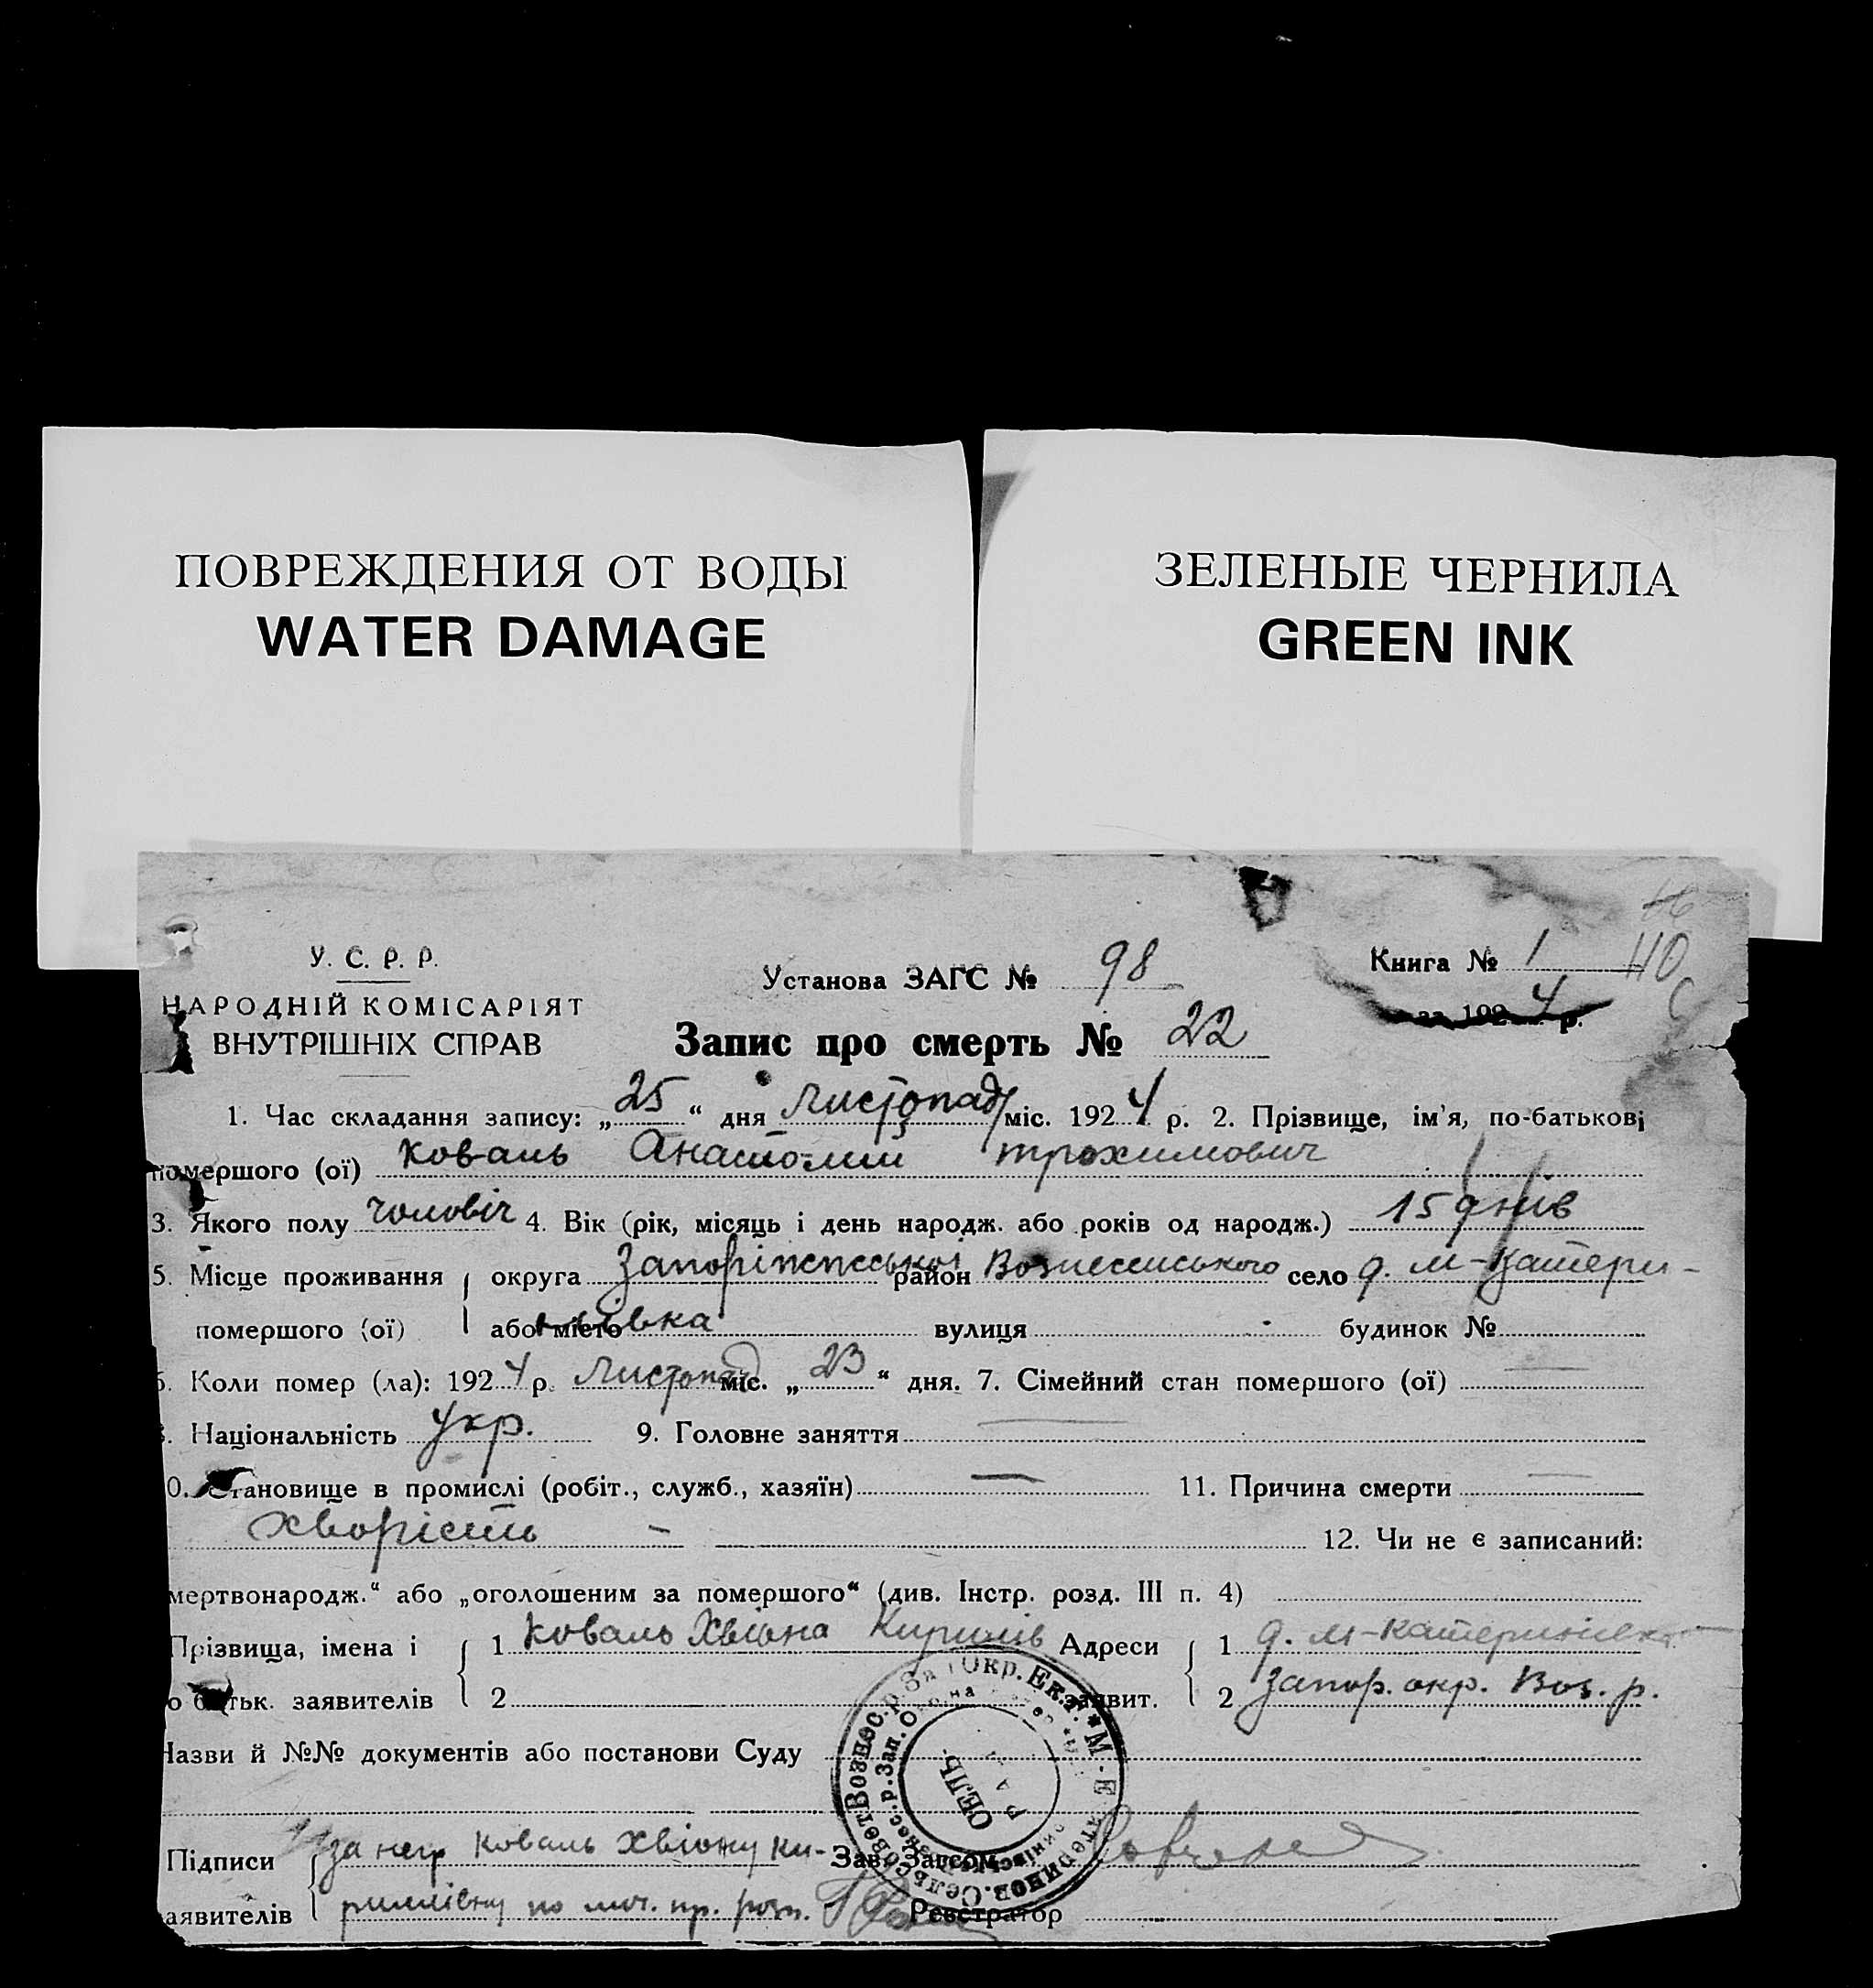 ПОВРЕЖДЕНИЯ ОТ ВОДЫ
WATER DAMAGE
ЗЕЛЕНЫЕ ЧЕРНИЛА
GREEN INK
У. С. Р. Р.
НАРОДНІЙ КОМІСАРІЯТ
ВНУТРІШНІХ СПРАВ
Установа ЗАГС № 98
Книга № 1 110
за 1924 р.
Запис про смерть № 22
1. Час складання запису: „25“ дня Листопад міс. 1924 р. 2. Прізвище, ім'я, по-батькові
помершого (ої) Коваль Анатолий Трохимович
3. Якого полу чоловіч 4. Вік (рік, місяць і день народж. або років од народж.) 15 днів
5. Місце проживання округа Запоріжської район Вознесенського село д. М-Катери-
помершого (ої) або місто нівка вулиця будинок №
6. Коли помер (ла): 1924 р. Листопад міс. „23“ дня. 7. Сімейний стан помершого (ої) —
8. Національність укр. 9. Головне заняття —
10. Становище в промислі (робіт., служб., хазяїн) — 11. Причина смерти —
хворість — 12. Чи не є записаний:
мертвонародж.“ або „оголошеним за помершого“ (див. Інстр. розд. III п. 4)
Прізвища, імена і 1 Коваль Хвіона Кирилів Адреси 1 д. М-Катеринівка
по батьк. заявителів 2 заявит. 2 Запор. окр. Воз. р.
Назви й №№ документів або постанови Суду
Підписи за негр Коваль Хвіону Ки- Зав. Загсом
заявителів риллівну по
Реєстратор
СЕЛЬ